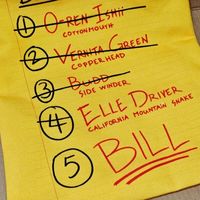 1 O-REN ISHII
COTTONMOUTH
2 VERNITA GREEN
COPPERHEAD
3 BUDD
SIDE WINDER
4 ELLE DRIVER
CALIFORNIA MOUNTAIN SNAKE
5 BILL